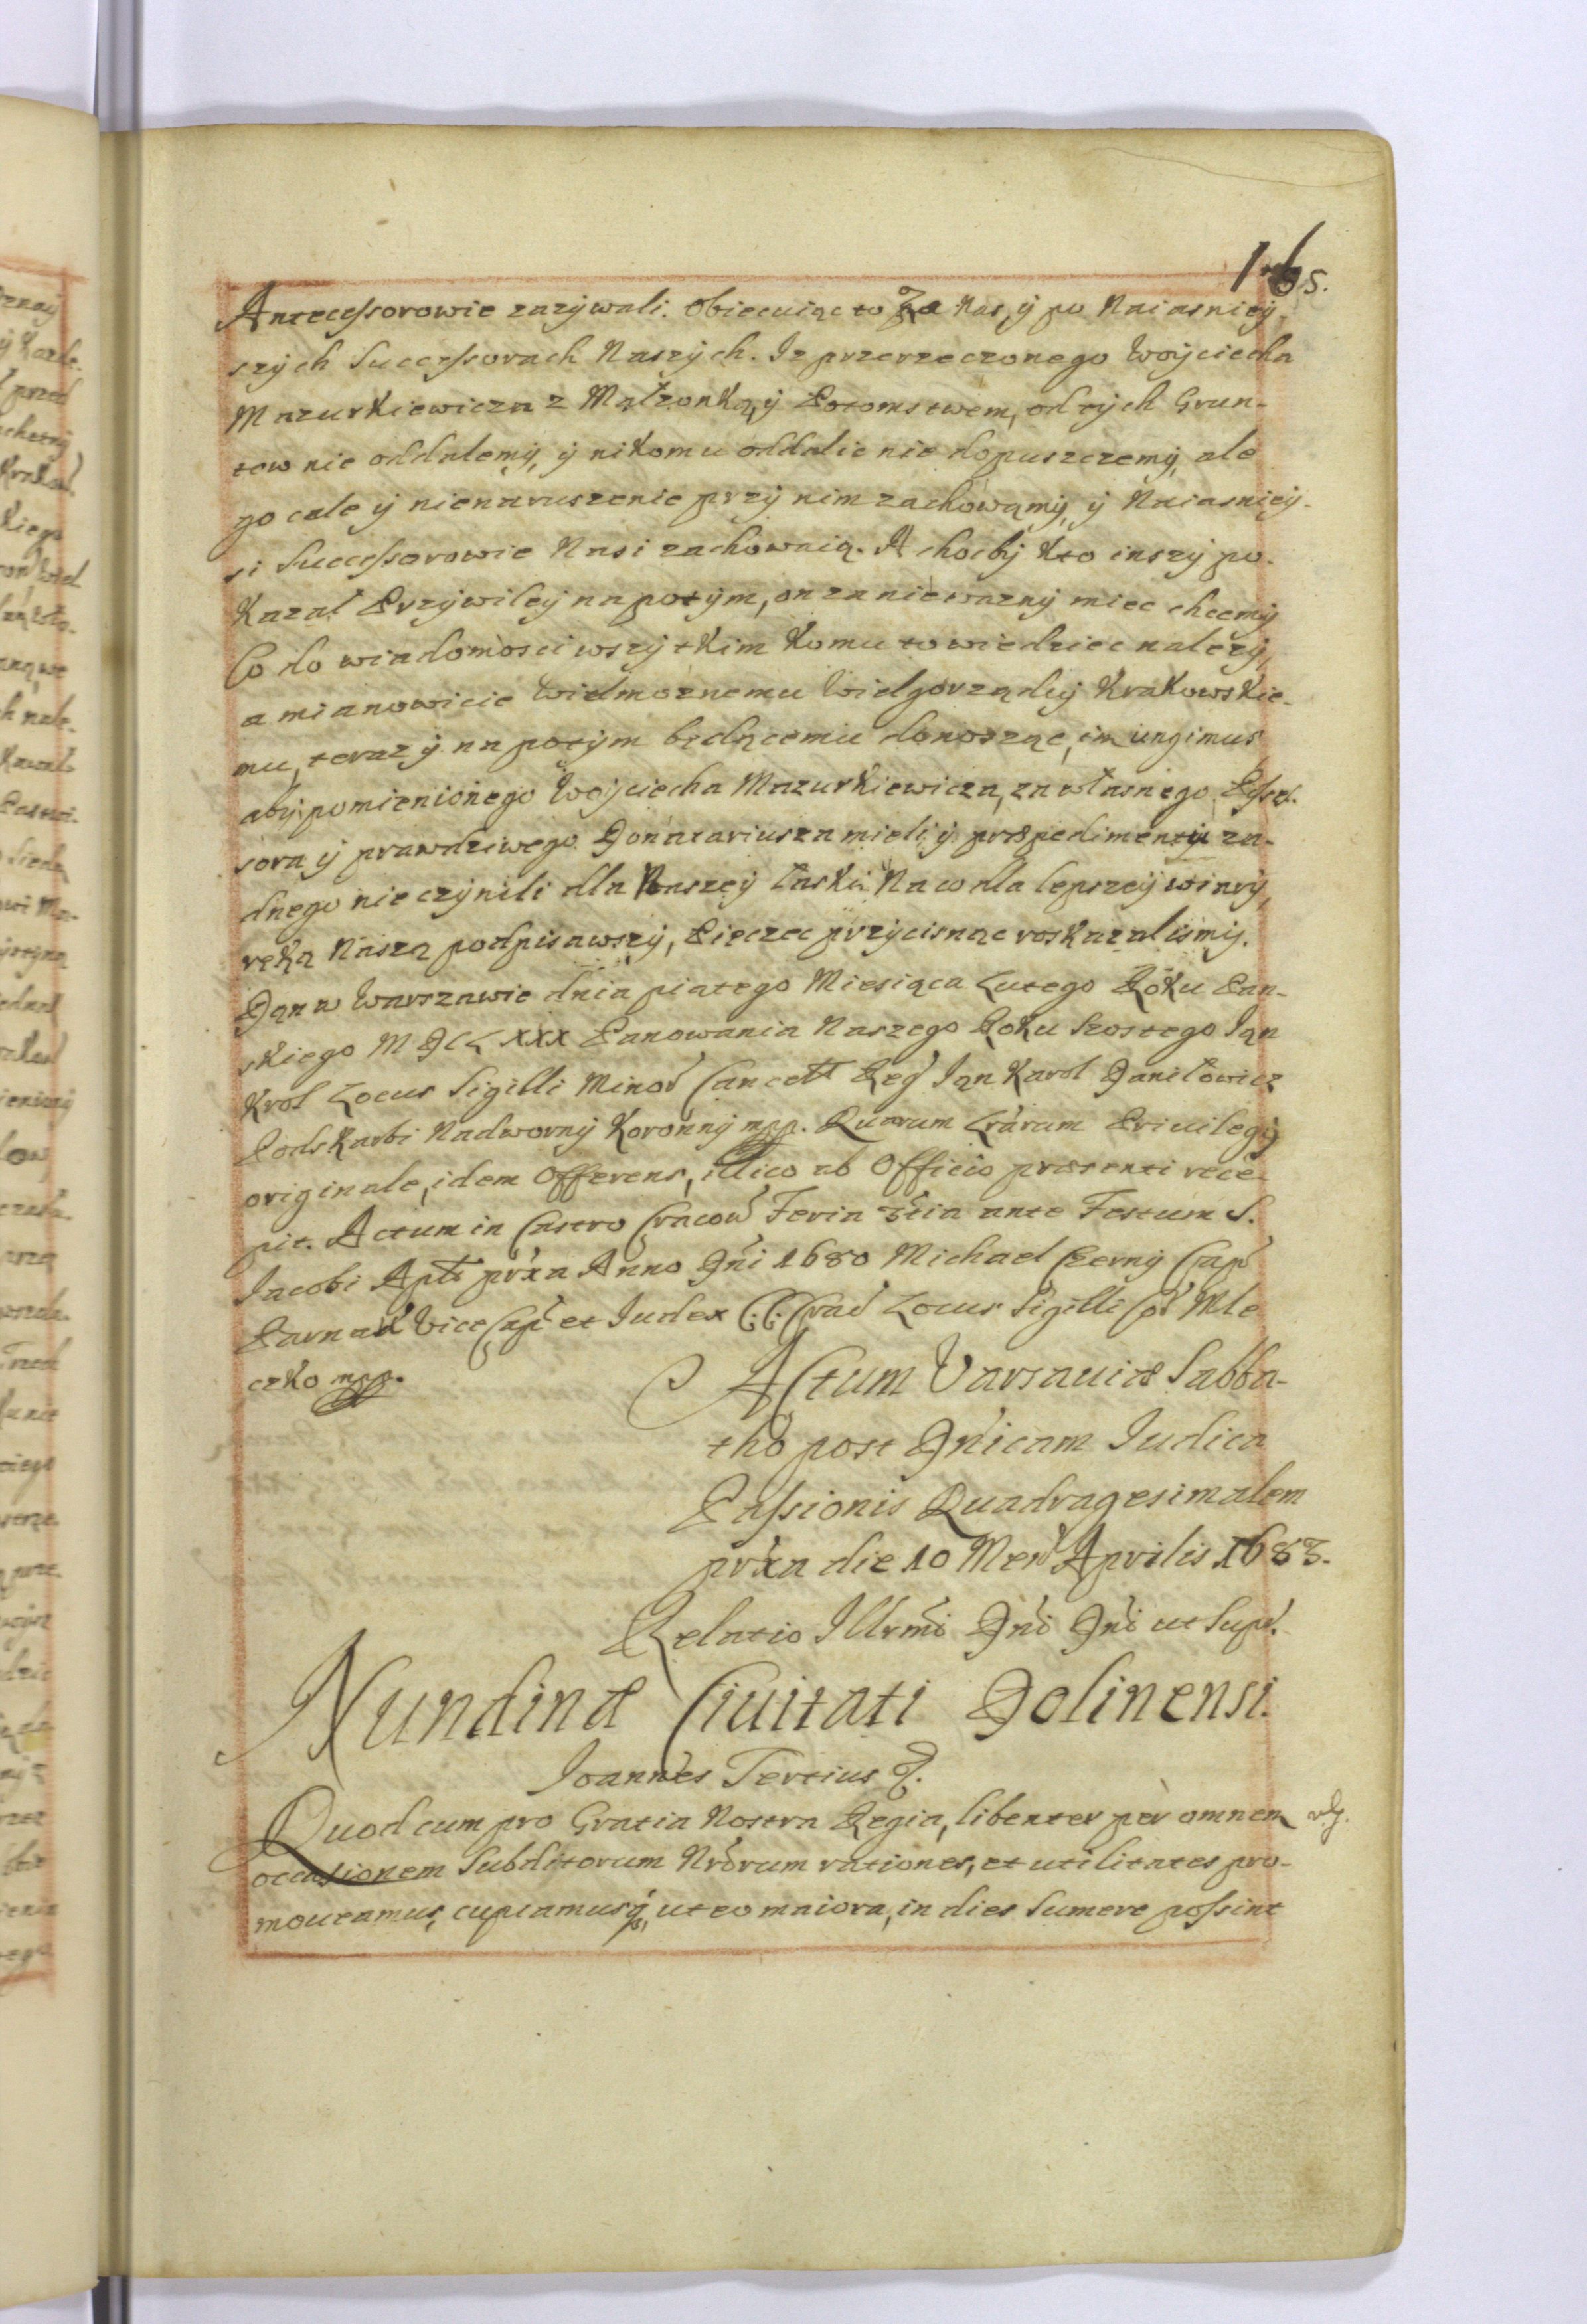 165.
Antecessorowie zazÿwali. Obiecuiąc to Za Nas, ÿ po Naiasnieÿ-
szÿch Successorach Naszÿch. Iz przerzeczonego Woÿciecha
Mazurkiewicza z Mąłzonką, ÿ Potomstwem, od tÿch Grun-
tow nie oddalemÿ, ÿ nikomu oddalic nie dopuszczemÿ, ale
go cale ÿ nienaruszenie przÿ nim zachowąmÿ, ÿ Naiasnieÿ-
si Successorowie Nasi zachowaią. A chocbÿ kto inszÿ po-
kazał Przÿwileÿ napotÿm, on za niewaznÿ miec chcemÿ
Co do wiadomosci wszÿtkim komu to wiedziec nalezÿ,
a mianowicie Wielmoznemu Wielgorządcÿ Krakowskie-
mu, teraz ÿ na potÿm będącemu donosząc, iniungimus
abÿ pomienionego Woÿciecha Mazurkiewicza, za własnego
sora ÿ prawdziwego Donatariusza mieli ÿ præpedimentu za-
dnego nie czÿnili dla Naszeÿ łaski. Na co dla lepszeÿ wiarÿ,
ręką Naszą podpisawszÿ, Pieczec przÿcisnąc roskazalismÿ.
Dąn w Warszawie dnia piątego Miesiąca Lutego Roku Pan-
skiego MDCLXXX Panowania Naszego Roku Szostego Ian
Krol Locus Sigilli Minor Cancell Reg Ian Karol Daniłowicz
Podskarbi Nadwornÿ Koronnÿ mpp. Quarum Lrarum Priuilegÿ
originale, idem Offerens, illico ab Officio præsenti rece-
pit. Actum in Castro Cracow Feria 3tia ante Festum S.
Iacobi Aptli prxa Anno Dni 1680 Michael Czernÿ Cap
Parna Vice Cap et Iudex C. C. Crac Locus Sigilli Cor Mle
czko mpp.
Actum Varsauiæ Sabba-
tho post Dnicam Iudica
Passionis Quadragesimalem
prxa die 10 Men Aprilis 1683.
Relatio Illrmi Dni Dni ut Supr.
Nundinæ Ciuitati Dolinensi.
Ioannes Tertius &.
Quod cum pro Gratia Nostra Regia, libenter per omnem
occasionem Subditorum Nrorum rationes, et utilitates pro-
moueamus, cupiamusq, ut eo maiora, in dies Sumere possint